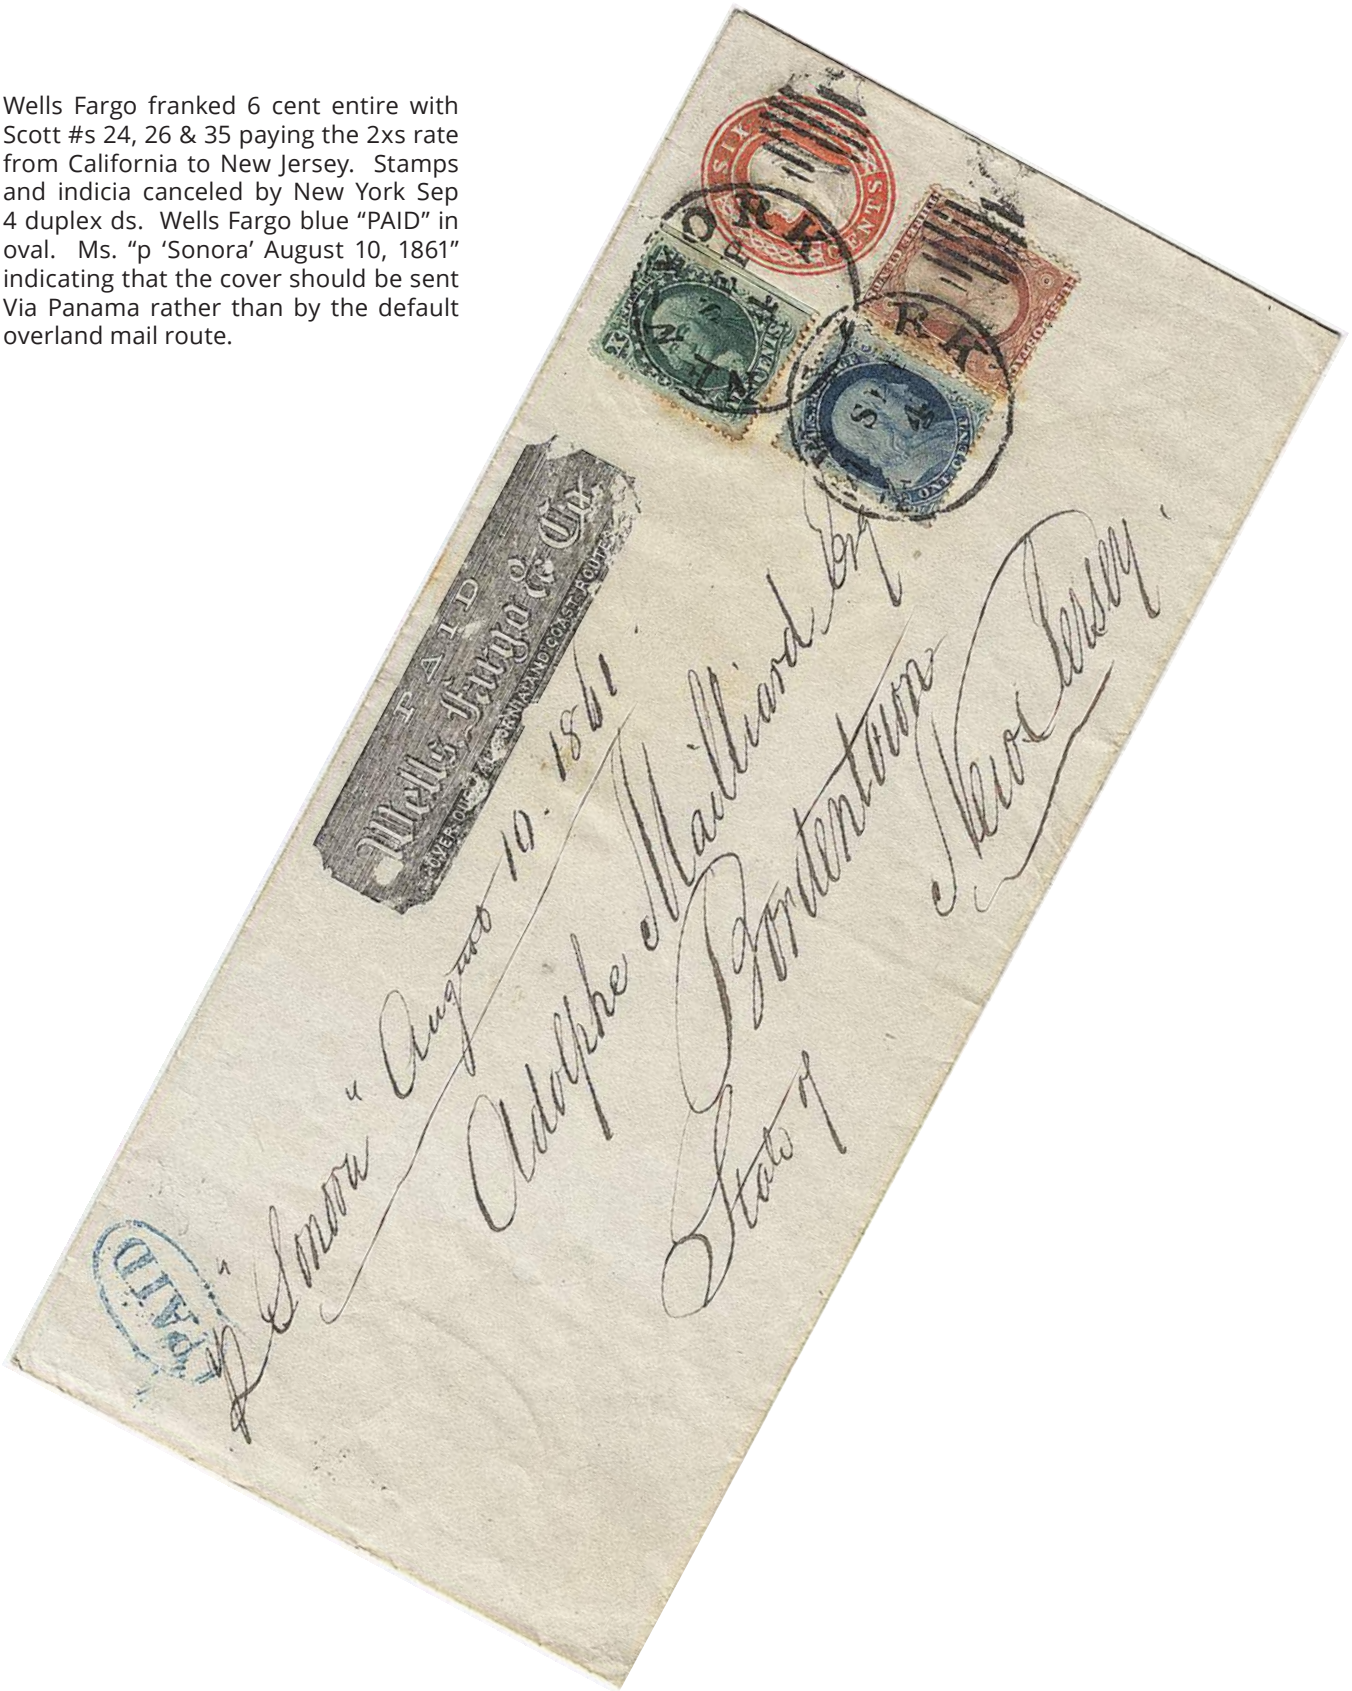 Wells Fargo franked 6 cent entire with
Scott #s 24, 26 & 35 paying the 2xs rate
from California to New Jersey. Stamps
and indicia canceled by New York Sep
4 duplex ds. Wells Fargo blue “PAID” in
oval. Ms. “p ‘Sonora’ August 10, 1861”
indicating that the cover should be sent
Via Panama rather than by the default
overland mail route.
SIX CENTS
ORK
RK
ONE CENT
PAID
Wells Fargo & Co.
AND COAST ROUTES
p "Sonora" August 10. 1861.
Adolphe Mailliard Esq
Bordentown
State of New Jersey.
PAID